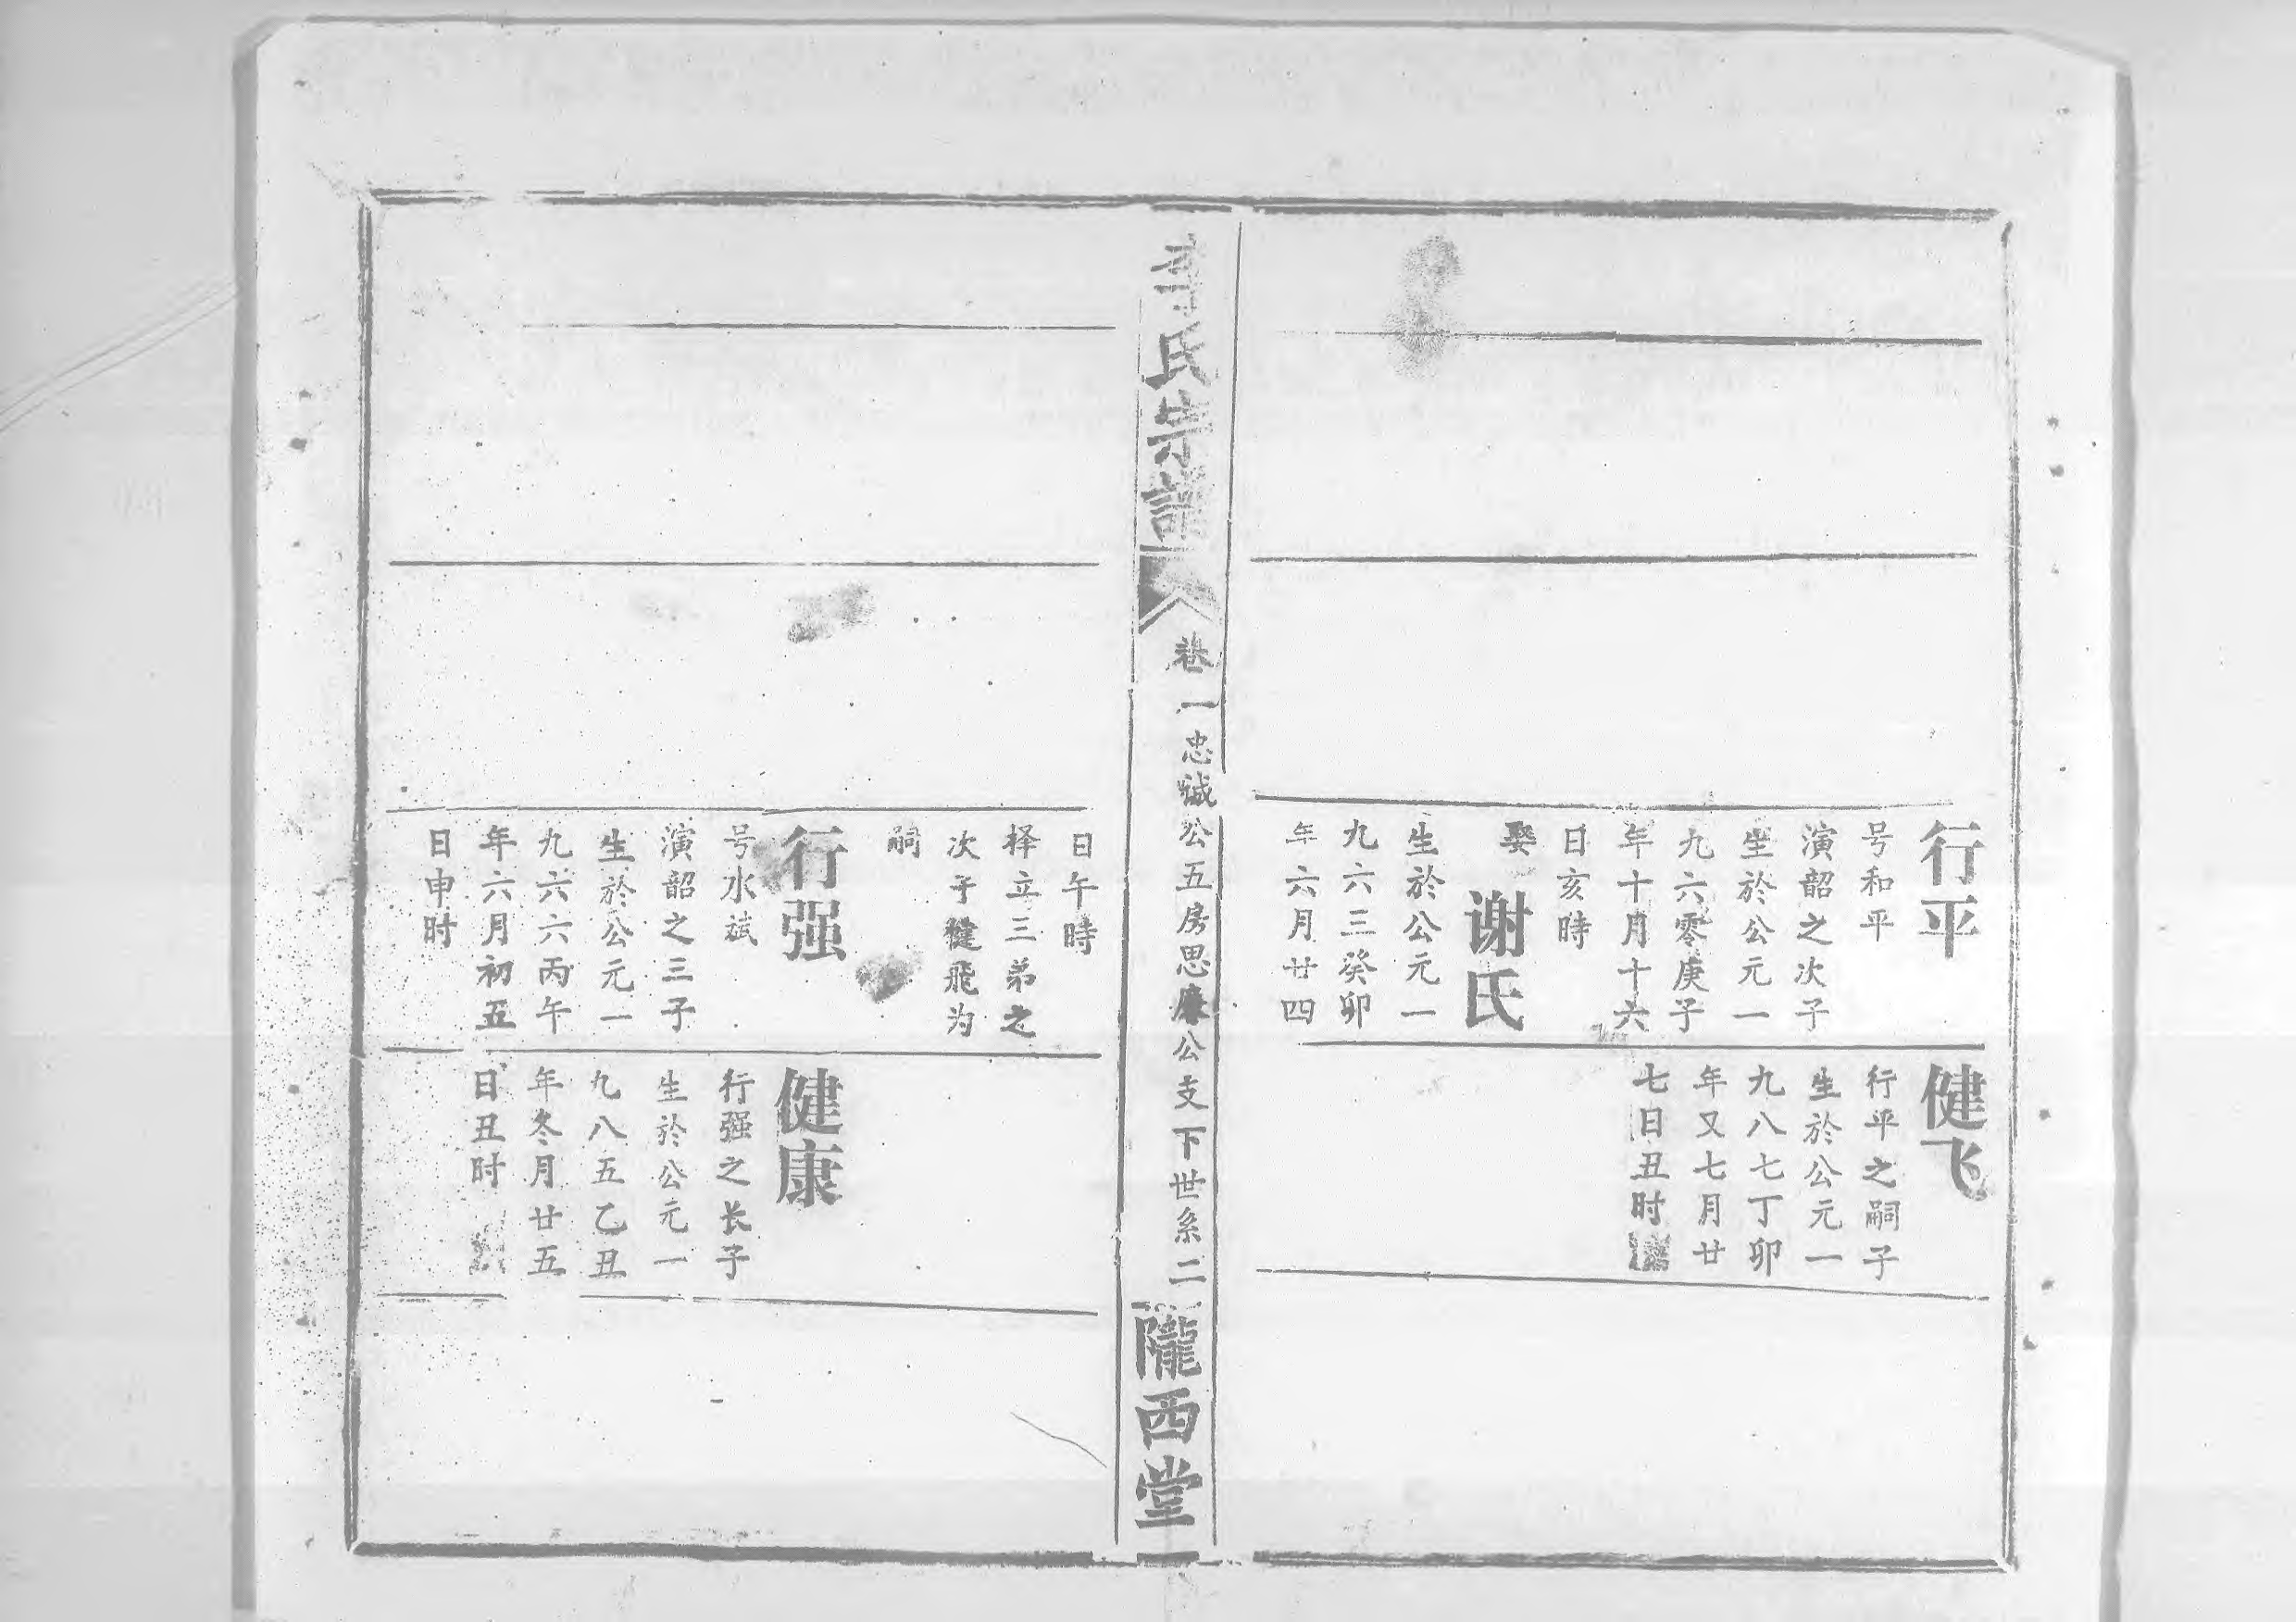 行平
号和平
演韶之次子
生於公元一
九六零庚子
年十月十六
日亥時
娶
谢氏
生於公元一
九六三癸卯
年六月廿四
健飞
行平之嗣子
生於公元一
九八七丁卯
年又七月廿
七日丑时
李氏宗譜
卷一忠诚公五房思廉公支下世系二
隴西堂
日午時
择立三弟之
次子健飛为
嗣
行强
号水斌
演韶之三子
生於公元一
九六六丙午
年六月初五
日申时
健康
行强之长子
生於公元一
九八五乙丑
年冬月廿五
日丑时